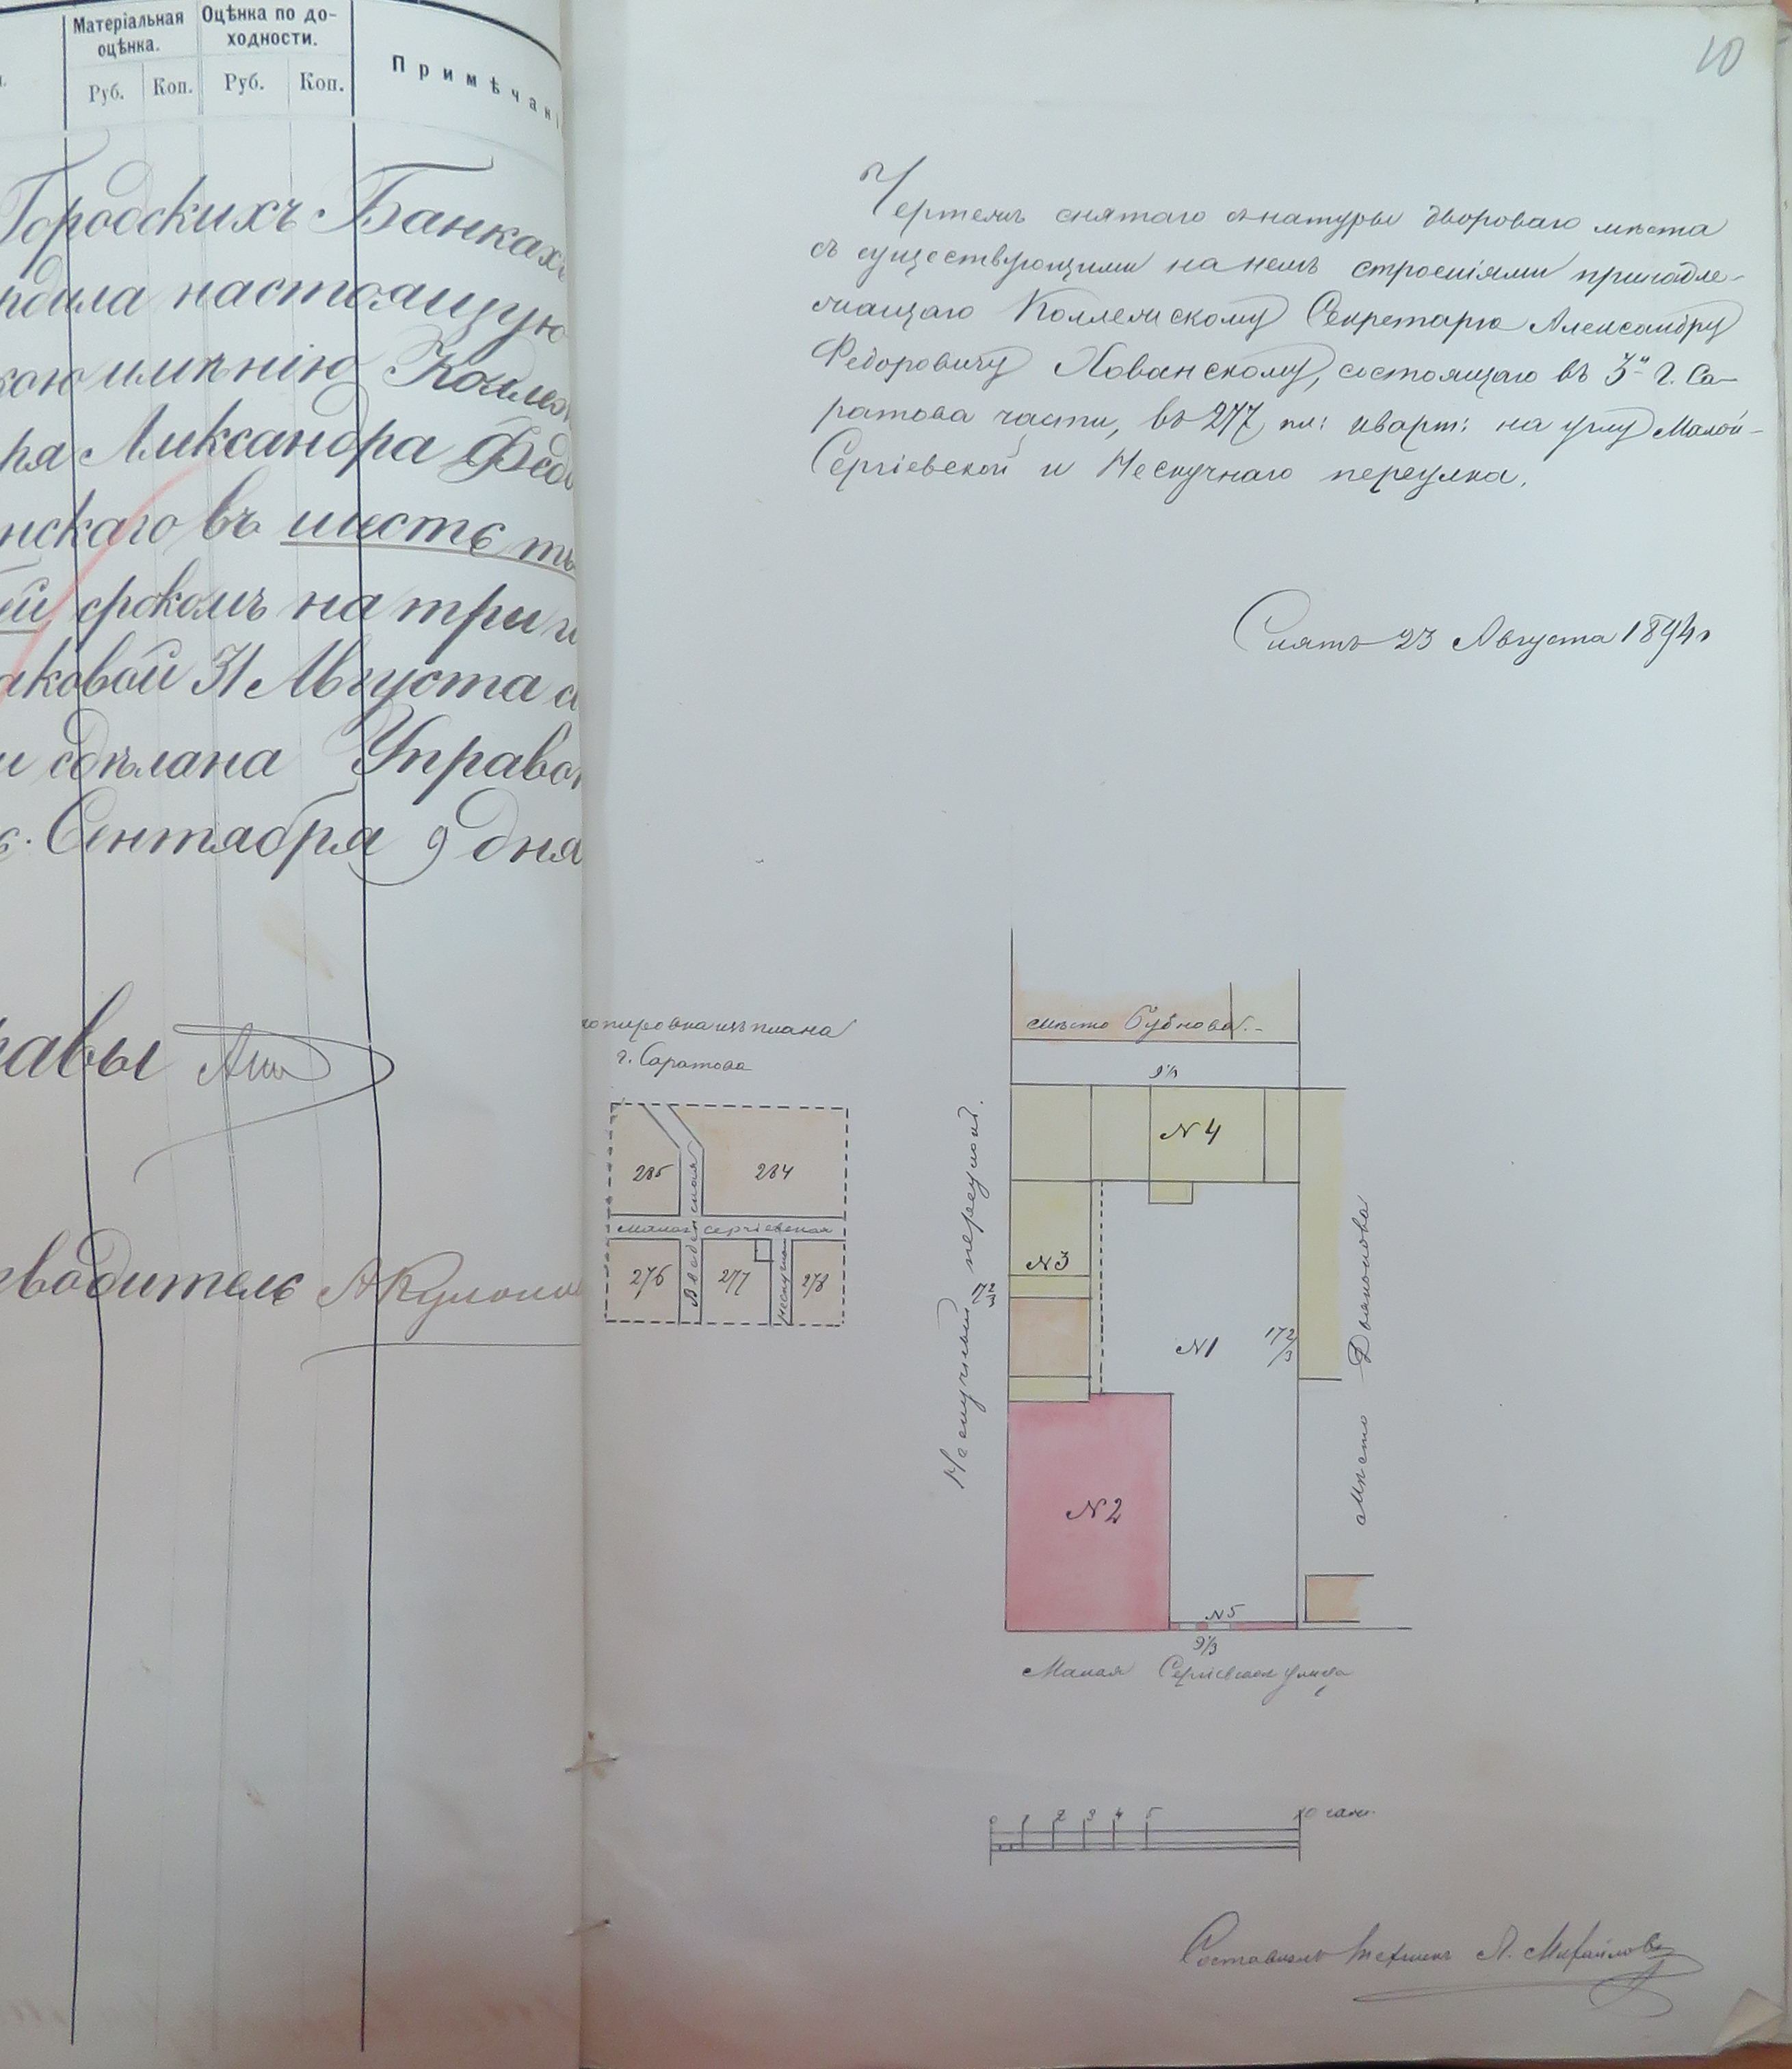 Матеріальная
оцѣнка.
Оцѣнка по до-
ходности.
Руб.
Коп.
Руб.
Коп.
Примѣчан
Городскихъ Банкахъ
рдила настоящую
имѣнію Коллеж
ря Александра Федо
нскаго въ шесть ты
ей срокомъ на три г
аковой 31 Августа с
и сдѣлана Управою
Сентября 9 дня
равы
зводитель
10
Чертежъ снятаго съ натуры двороваго мѣста
съ существующими на немъ строеніями принадле-
жащаго Коллежскому Секретарю Александру
Федоровичу Хованскому, состоящаго въ 3й г. Са-
ратова части, въ 277 пл: кварт: на углу Малой-
Сергіевской и Нескучнаго переулка.
Снятъ 23 Августа 1894 г
копировка изъ плана
г. Саратова
285
284
Малая Сергіевская
Введенская
276
277
Нескучный
278
мѣсто Бубнова.
9⅓
N 4
Нескучный переулокъ.
17⅔
N 3
N 1
17⅔
мѣсто Дьяконова
N 2
N 5
9⅓
Малая Сергіевская улица
0 1 2 3 4 5 10 саж.
Составилъ техникъ А. Михайловъ